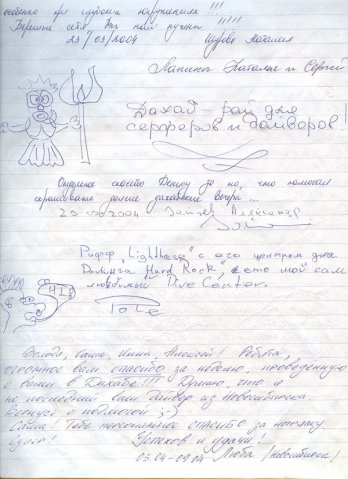 особенно при глубоких погружениях !!!
Берегите себя Вы нам нужны !!!!!
29/03/2004 Наталия
Наталья и Сергей
Дахаб - рай для
серферов и дайверов!
Огромное спасибо Денису за то, что помогал
скрашивать долгие дахабские вечера...
2004 Александр
Рифф "Lighthouse" с его центром для
Дайвинга "Hard Rock", это мой самый
любимый Dive Center.
Володя, Саша, Инна, Алексей! Ребята,
огромное вам спасибо за неделю, проведенную
с вами в Дахабе!!! Думаю, что я
не последний ваш дайвер из Новосибирска.
Вернусь с подмогой ;-)
Саша! Тебе персональное спасибо за
Успехов и удачи!
03.04-09.04 Люба (Новосибирск)